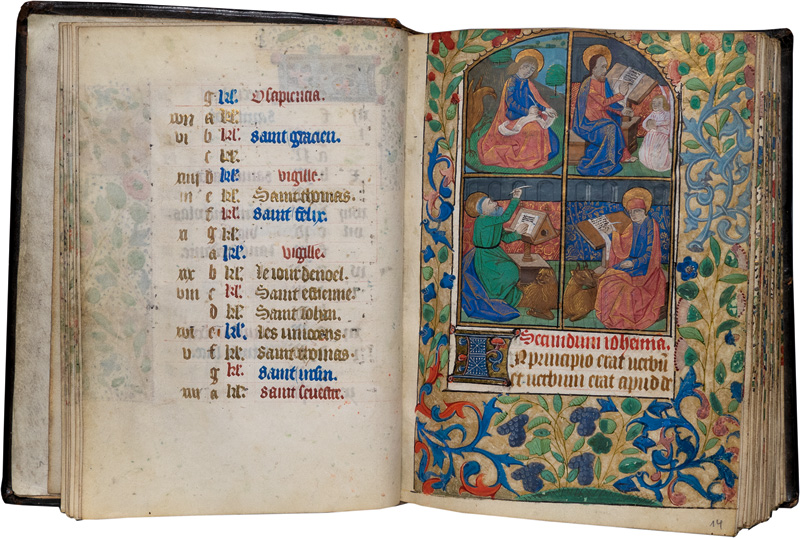 g kl. O sapiencia.
xvii a kl.
vi b kl. saint gracien.
c kl.
xiiii d kl. vigille.
iii e kl. Saint thomas.
f kl. saint felix.
xi g kl.
a kl. vigille.
xix b kl. le iour de noel.
viii c kl. Saint estienne
d kl. Saint Iohan.
xvi e kl. les innocens.
v f kl. Saint thomas.
g kl. saint
xiii a kl. saint seuestre.
Secundum iohanne.
IN principio erat uerbū
et uerbum erat apud de
14